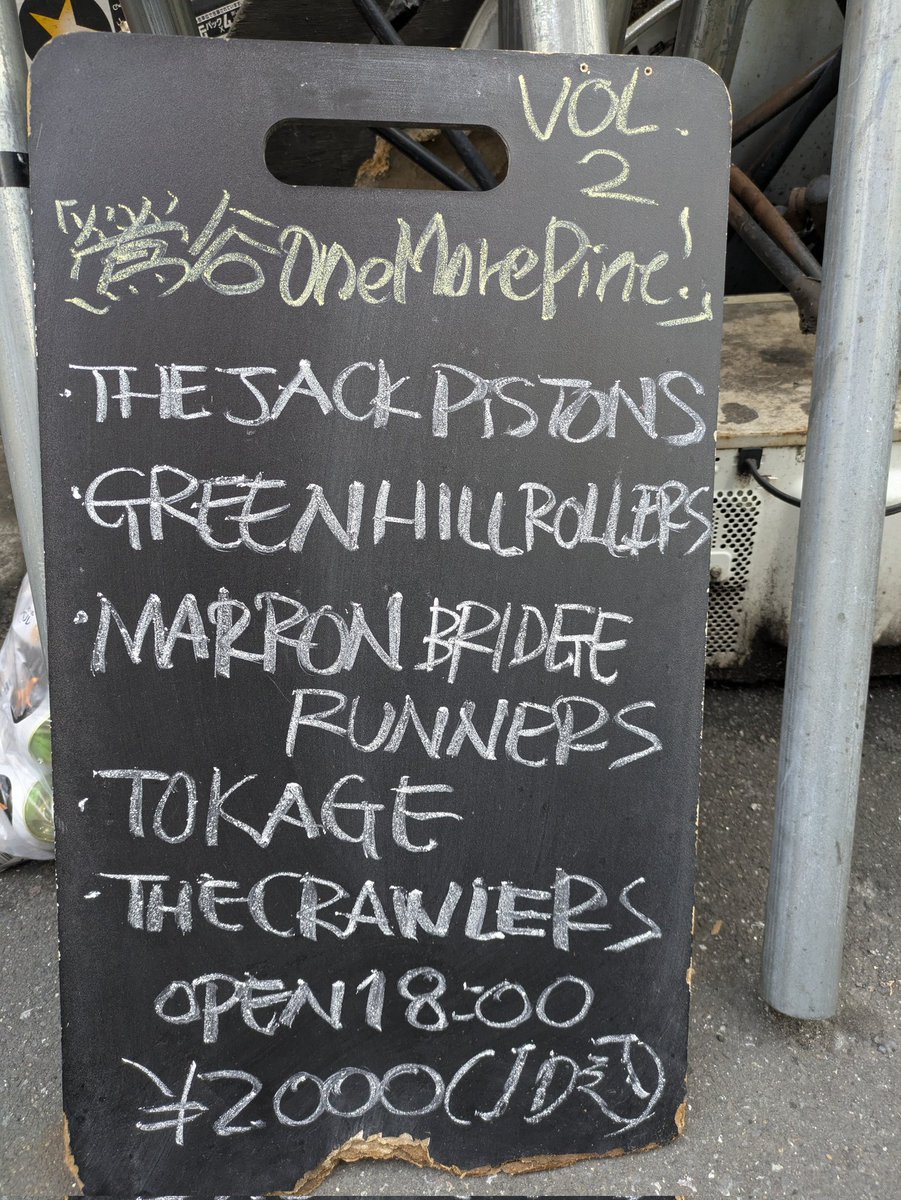 VOL.
2
「谷 One More Pine!」
・THE JACK PISTONS
・GREEN HILL ROLLERS
・MARRON BRIDGE
RUNNERS
・TOKAGE
・THE CRAWLERS
OPEN 18:00
¥2000(1D込)